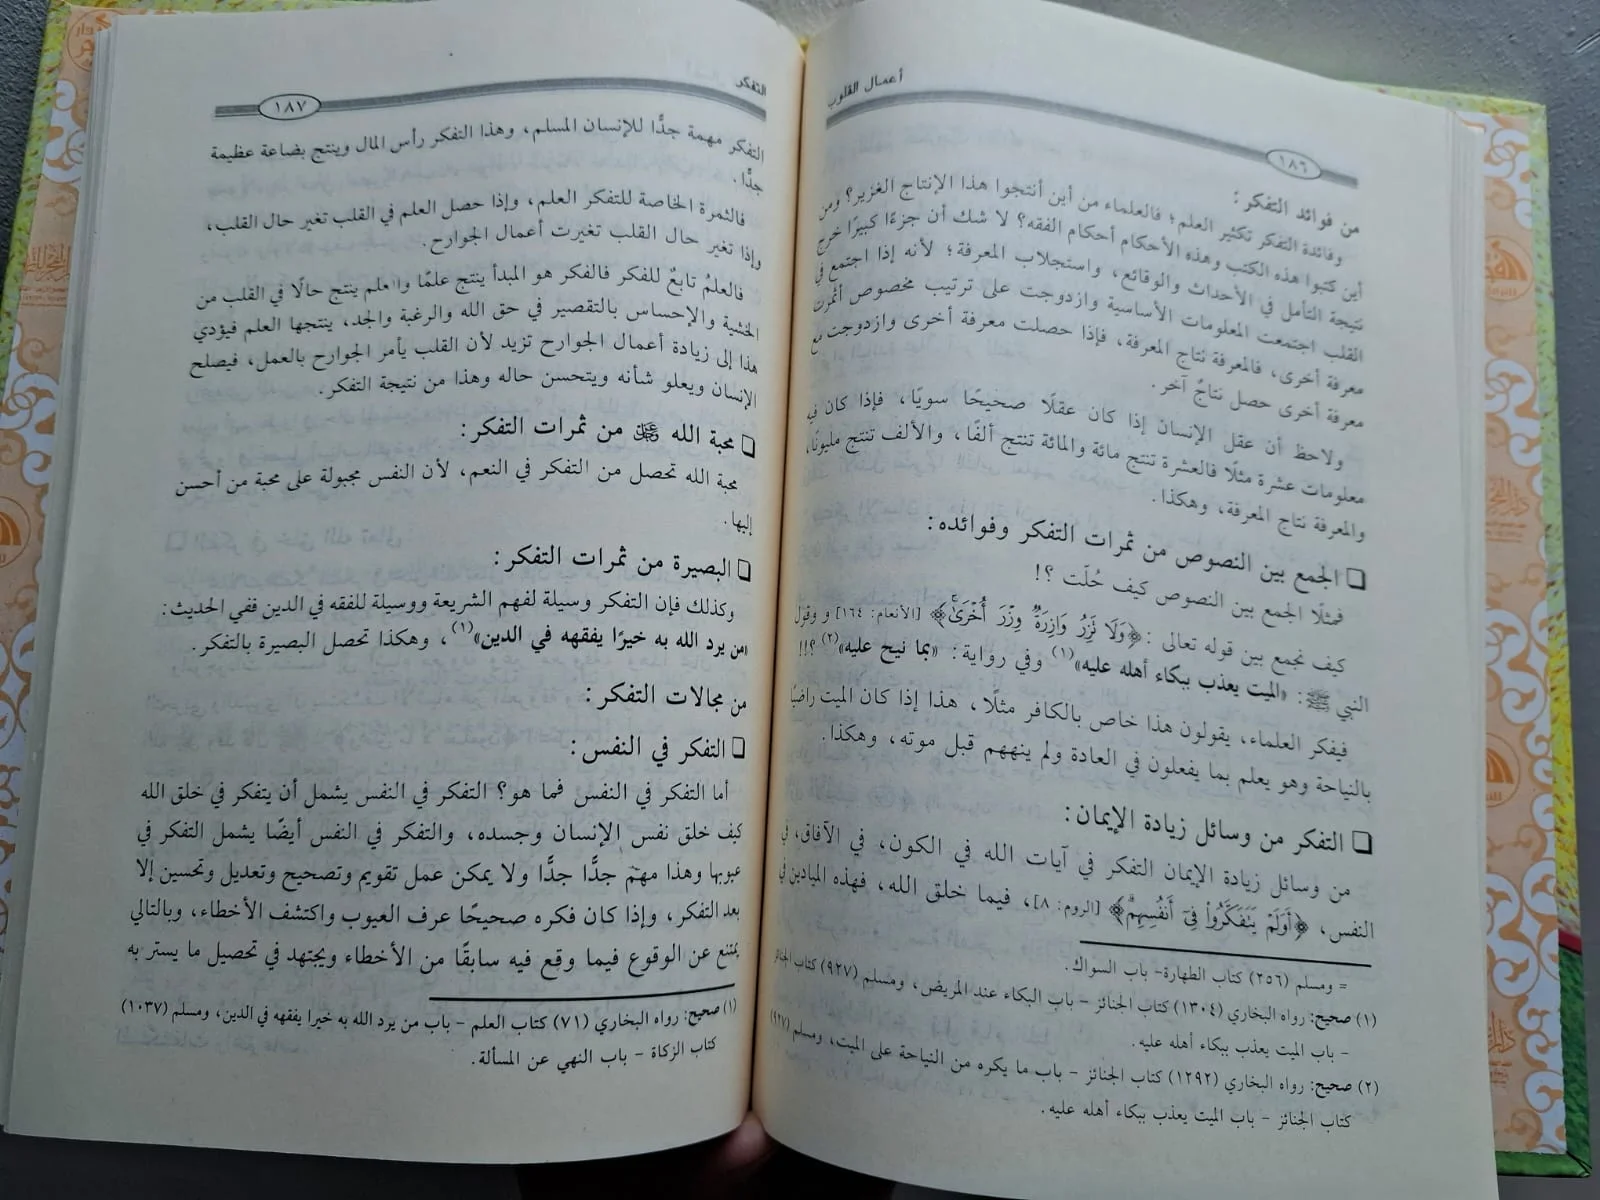 أعمال القلوب
١٨٦
من فوائد التفكر:
وفائدة التفكر تكثير العلم؛ فالعلماء من أين أنتجوا هذا الإنتاج الغزير؟ ومن
أين كتبوا هذه الكتب وهذه الأحكام أحكام الفقه؟ لا شك أن جزءًا كبيرًا خرج
نتيجة التأمل في الأحداث والوقائع، واستجلاب المعرفة؛ لأنه إذا اجتمع في
القلب اجتمعت المعلومات الأساسية وازدوجت على ترتيب مخصوص أثمرت
معرفة أخرى، فالمعرفة نتاج المعرفة، فإذا حصلت معرفة أخرى وازدوجت مع
معرفة أخرى حصل نتاجٌ آخر.
ولاحظ أن عقل الإنسان إذا كان عقلًا صحيحًا سويًا، فإذا كان فيه
معلومات عشرة مثلًا فالعشرة تنتج مائة والمائة تنتج ألفًا، والألف تنتج مليونًا،
والمعرفة نتاج المعرفة، وهكذا.
❑ الجمع بين النصوص من ثمرات التفكر وفوائده:
فمثلًا الجمع بين النصوص كيف حُلّت ؟!
كيف نجمع بين قوله تعالى: ﴿وَلَا تَزِرُ وَازِرَةٌ وِزْرَ أُخْرَىٰ﴾ [الأنعام: ١٦٤] و وقول
النبي ﷺ: «الميت يعذب ببكاء أهله عليه»(١) وفي رواية: «بما نيح عليه»(٢)؟!!
فيفكر العلماء، يقولون هذا خاص بالكافر مثلًا، هذا إذا كان الميت راضيًا
بالنياحة وهو يعلم بما يفعلون في العادة ولم ينههم قبل موته، وهكذا.
❑ التفكر من وسائل زيادة الإيمان:
من وسائل زيادة الإيمان التفكر في آيات الله في الكون، في الآفاق، في
النفس، ﴿أَوَلَمْ يَتَفَكَّرُوا فِي أَنفُسِهِم﴾ [الروم: ٨]، فيما خلق الله، فهذه الميادين في
= ومسلم (٢٥٦) كتاب الطهارة- باب السواك.
(١) صحيح: رواه البخاري (١٣٠٤) كتاب الجنائز - باب البكاء عند المريض، ومسلم (٩٢٧) كتاب الجنائز
- باب الميت يعذب ببكاء أهله عليه.
(٢) صحيح: رواه البخاري (١٢٩٢) كتاب الجنائز - باب ما يكره من النياحة على الميت، ومسلم (٩٢٧)
كتاب الجنائز - باب الميت يعذب ببكاء أهله عليه.
التفكر
١٨٧
التفكر مهمة جدًّا للإنسان المسلم، وهذا التفكر رأس المال وينتج بضاعة عظيمة
جدًّا.
فالثمرة الخاصة للتفكر العلم، وإذا حصل العلم في القلب تغير حال القلب،
وإذا تغير حال القلب تغيرت أعمال الجوارح.
فالعلمُ تابعٌ للفكر فالفكر هو المبدأ ينتج علمًا والعلم ينتج حالًا في القلب من
الخشية والإحساس بالتقصير في حق الله والرغبة والجد، ينتجها العلم فيؤدي
هذا إلى زيادة أعمال الجوارح تزيد لأن القلب يأمر الجوارح بالعمل، فيصلح
الإنسان ويعلو شأنه ويتحسن حاله وهذا من نتيجة التفكر.
❑ محبة الله ﷻ من ثمرات التفكر:
محبة الله تحصل من التفكر في النعم، لأن النفس مجبولة على محبة من أحسن
إليها.
❑ البصيرة من ثمرات التفكر:
وكذلك فإن التفكر وسيلة لفهم الشريعة ووسيلة للفقه في الدين ففي الحديث:
«من يرد الله به خيرًا يفقهه في الدين»(١)، وهكذا تحصل البصيرة بالتفكر.
من مجالات التفكر:
❑ التفكر في النفس:
أما التفكر في النفس فما هو؟ التفكر في النفس يشمل أن يتفكر في خلق الله
كيف خلق نفس الإنسان وجسده، والتفكر في النفس أيضًا يشمل التفكر في
عيوبها وهذا مهمّ جدًّا جدًّا ولا يمكن عمل تقويم وتصحيح وتعديل وتحسين إلا
بعد التفكر، وإذا كان فكره صحيحًا عرف العيوب واكتشف الأخطاء، وبالتالي
يمتنع عن الوقوع فيما وقع فيه سابقًا من الأخطاء ويجتهد في تحصيل ما يستر به
(١) صحيح: رواه البخاري (٧١) كتاب العلم - باب من يرد الله به خيرا يفقهه في الدين، ومسلم (١٠٣٧)
كتاب الزكاة - باب النهي عن المسألة.